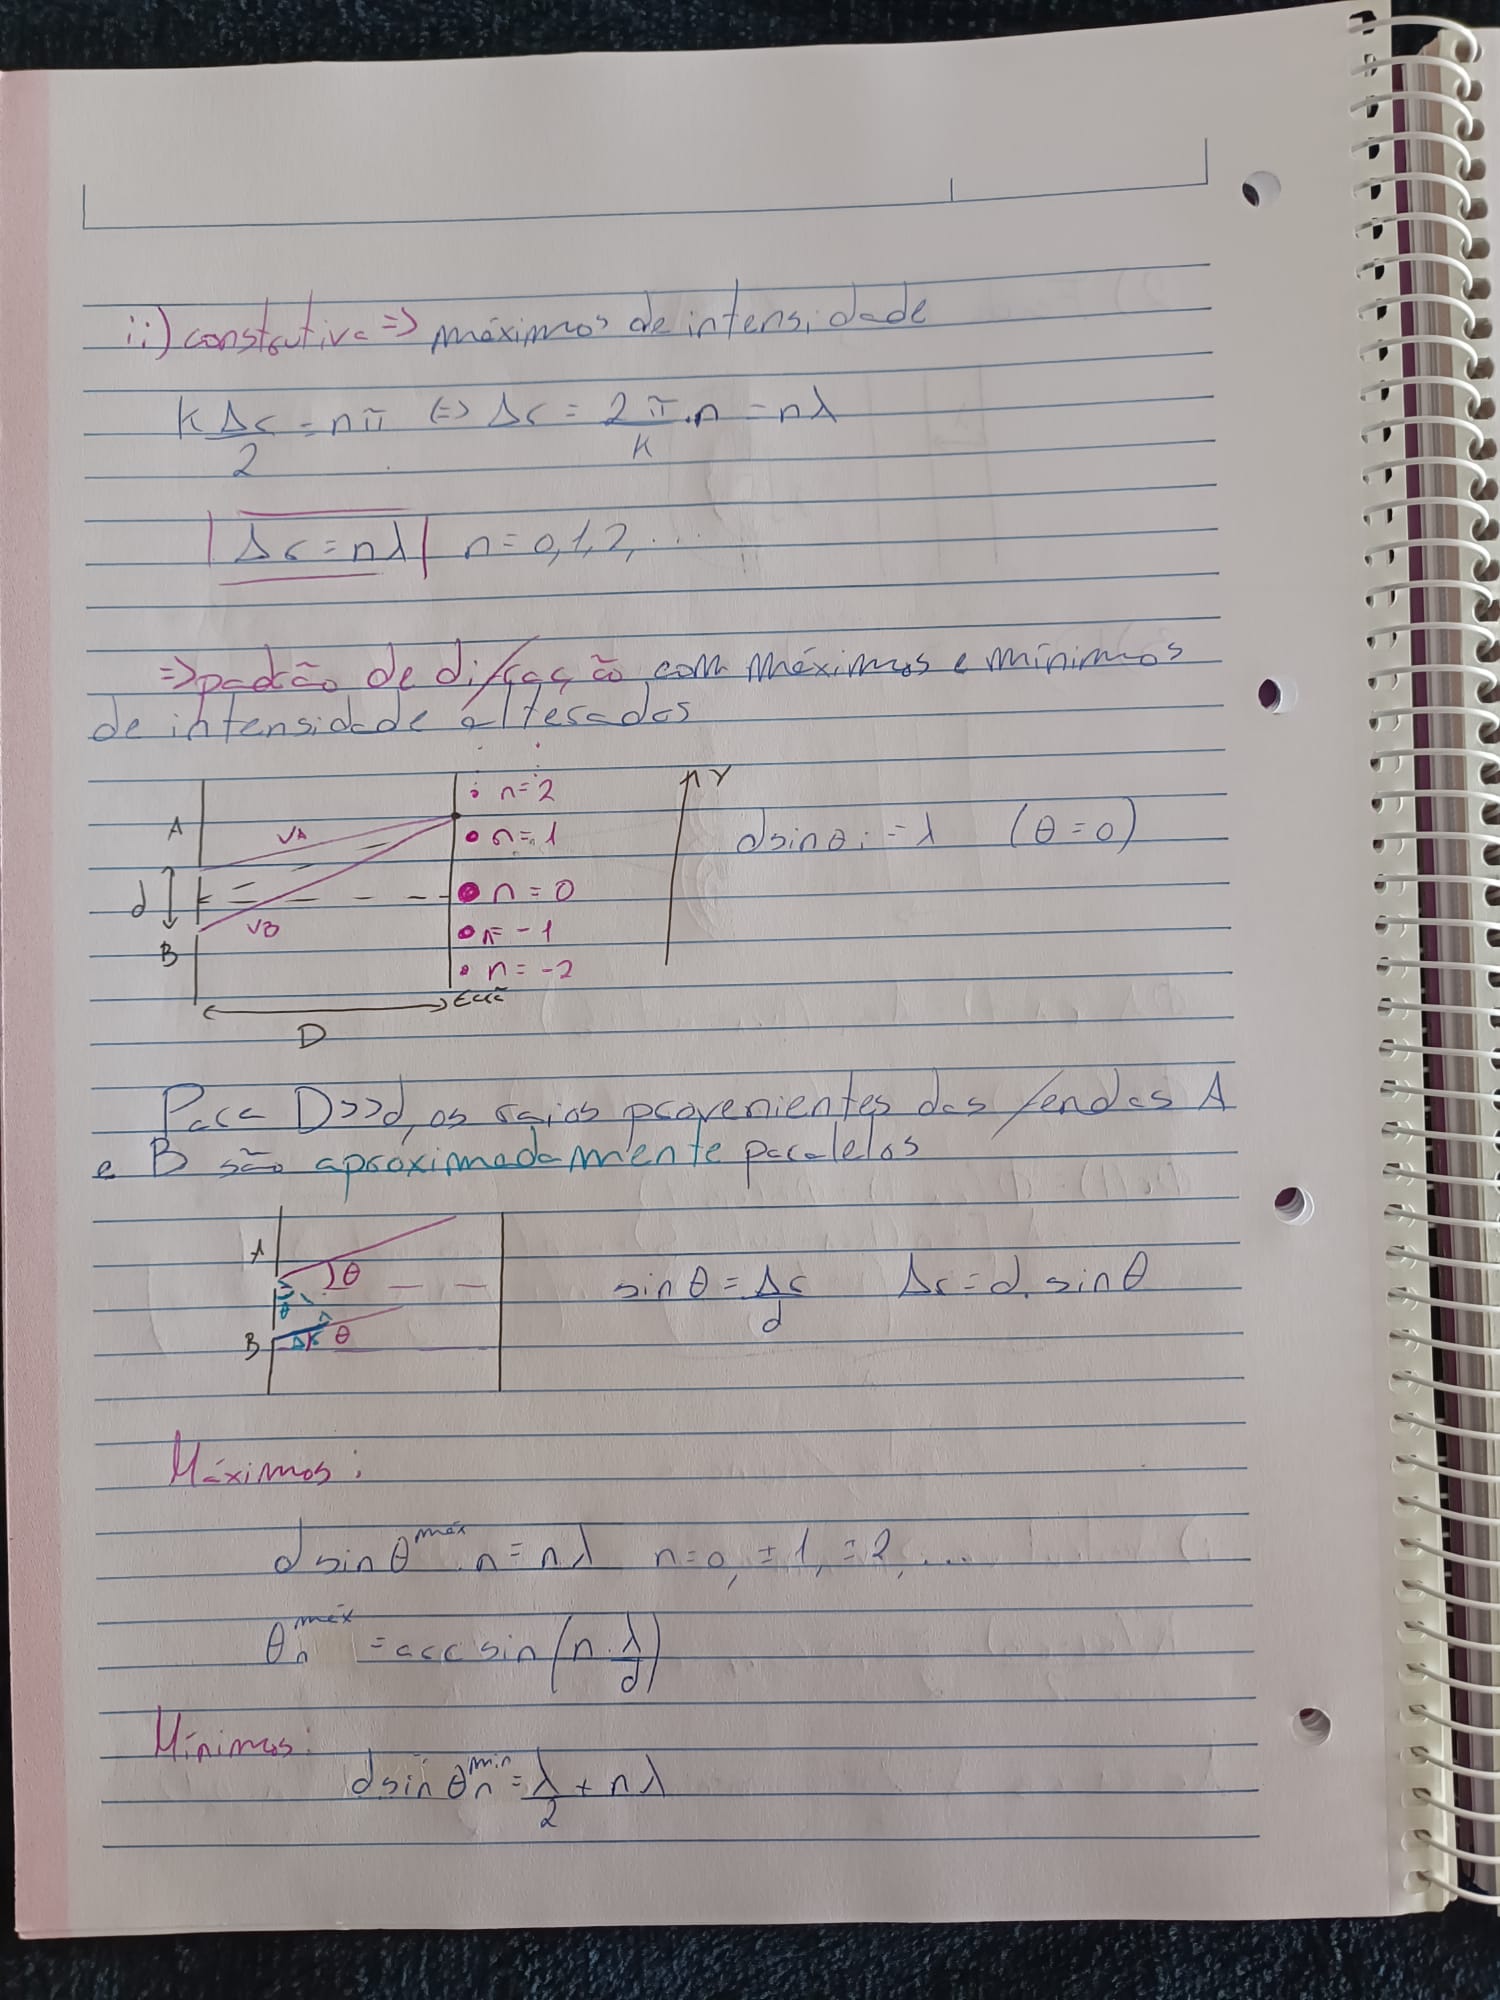 ii) construtiva => máximos de intensidade
k Δr/2 = nπ <=> Δr = 2π/k . n = nλ
Δr = nλ n = 0, 1, 2, ...
=> padrão de difração com máximos e mínimos
de intensidade alterados
A
d
B
rA
rB
D
Ecrã
n = 2
n = 1
n = 0
n = -1
n = -2
Y
d sin θ₁ = λ (θ = 0)
Para D>>d, os raios provenientes das fendas A
e B são aproximadamente paralelos
A
θ
θ
B
Δr
θ
sin θ = Δr/d Δr = d . sin θ
Máximos:
d sin θ^máx . n = nλ n = 0, ±1, ±2, ...
θₙ^máx = arc sin (n . λ/d)
Mínimos:
d sin θₙ^min = λ/2 + nλ